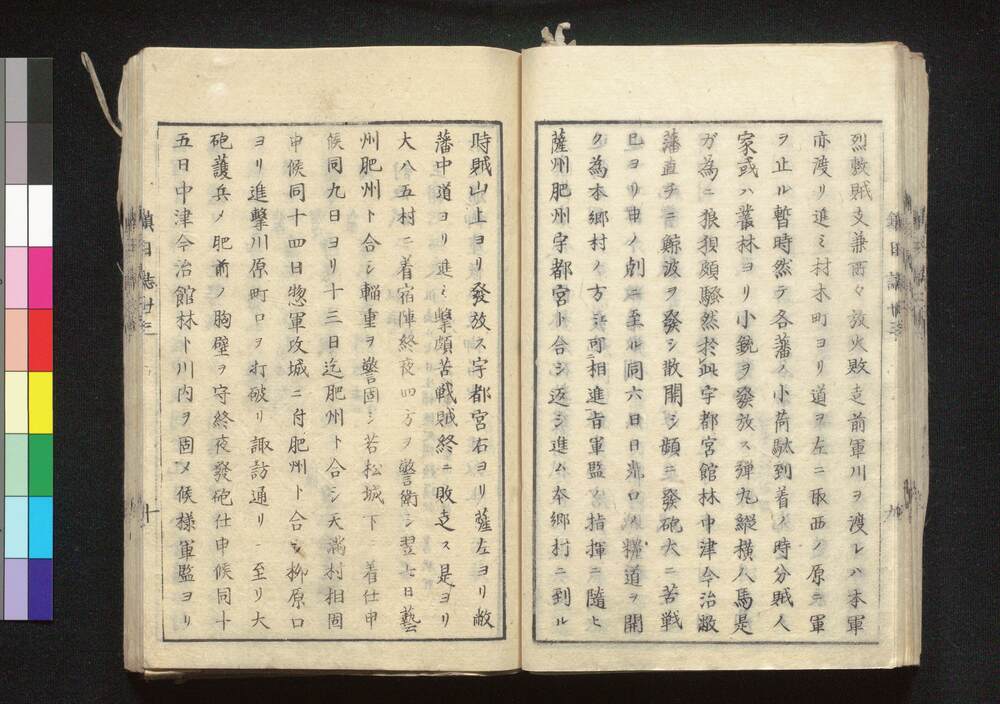 烈敷賊支兼西々放火敗走前軍川ヲ渡レハ本軍
亦渡リ進ミ村木町ヨリ道ヲ左ニ取西ノ原ニ軍
ヲ止ル暫時然テ各藩ノ小荷駄到着ノ時分賊人
家或ハ叢林ヨリ小銃ヲ發放ス彈丸縱横人馬是
ガ為ニ狼狽頗騒然於此宇都宮館林中津今治敝
藩直チニ鯨波ヲ發シ散開シ頻ニ發砲大ニ苦戦
巳ヨリ申ノ刻ニ至ル同六日日光口ノ糧道ヲ開
ク為本郷村ノ方ヘ可相進旨軍監ノ指揮ニ隨ヒ
薩州肥州宇都宮ト合シ返シ進ム本郷村ニ到ル
時賊山上ヨリ發放ス宇都宮右ヨリ薩左ヨリ敝
藩中道ヨリ進ミ撃頗苦戦賊終ニ敗走ス是ヨリ
大八五村ニ着宿陣終夜四方ヲ警衛シ翌七日藝
州肥州ト合シ輜重ヲ警固シ若松城下ニ着仕申
候同九日ヨリ十三日迄肥州ト合シ天満村相固
申候同十四日惣軍攻城ニ付肥州ト合シ柳原口
ヨリ進撃川原町口ヲ打破リ諏訪通リニ至リ大
砲護兵メ肥前ノ胸壁ヲ守終夜發砲仕申候同十
五日中津今治館林ト川内ヲ固メ候様軍監ヨリ
鎮日誌廿三
十